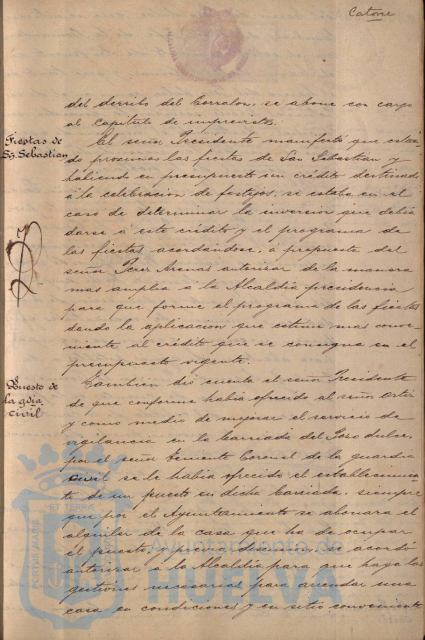 Catorce
del derribo del Corralon, se abone con cargo
al capitulo de imprevistos.
Fiestas de
Sn. Sebastian
El señor Presidente manifestó que estan-
do proximas las fiestas de San Sebastian y
habiendo en presupuesto un crédito destinado
á la celebracion de festejos, se estaba en el
caso de determinar la inversion que debia
darse á este crédito y el programa de
las fiestas acordandose, á propuesta del
señor Perez Arenas autorizar de la manera
mas amplia á la Alcaldia presidencia
para que forme el programa de las fiestas
dando la aplicacion que estime mas conve-
niente al crédito que se consigna en el
presupuesto vigente.
Puesto de
la gdia
civil
Tambien dió cuenta el señor Presidente
de que conforme habia ofrecido al señor Ortiz
y como medio de mejorar el servicio de
vigilancia en la barriada del Pozo dulce,
por el señor Teniente Coronel de la guardia
civil se le habia ofrecido el establecimien-
to de un puesto en dicha barriada, siempre
que por el Ayuntamiento se abonara el
alquiler de la casa que ha de ocupar
el puesto, y se acordó
autorizar á la Alcaldia para que haga las
gestiones necesarias para arrendar una
casa en condiciones y en sitio conveniente
PORTUS MARIS
ET TERRÆ
Ayuntamiento de
HUELVA